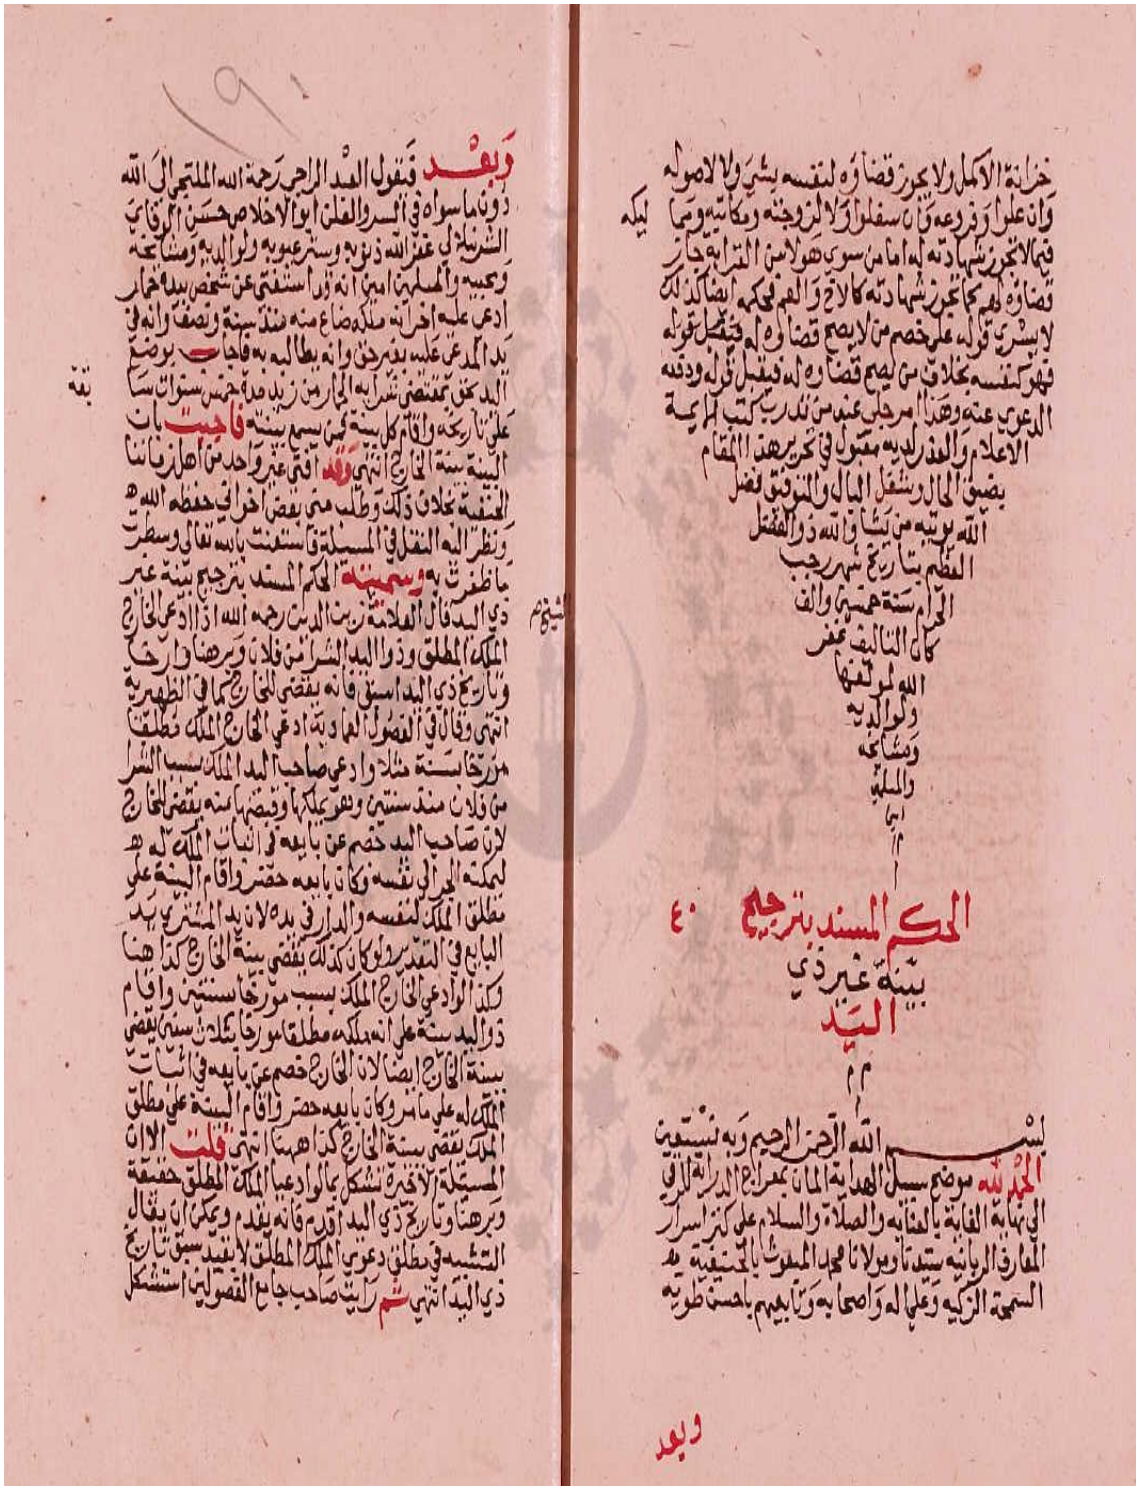 خزانة الاكمل ولا يجوز قضاؤه لنفسه بشي ولا لاصوله
وان علوا وفروعه وان سفلوا ولا لزوجته ومكاتبه ومما
ليكه
فيمالا تجوز شهادته له اما من سوى هولا من القرابة جاز
قضاؤه لهم كما تجوز شهادته كالاخ والعم فحكمه ايضا كذلك
لا يسري قوله على خصم من لا يصح قضاوه له فيقبل قوله
فهو كنفسه بخلاف من يصح قضاوه له فيقبل قوله ودفعه
الدعوي عنه وهذا امر جلي عند من تدرب كتب الايمة
الاعلام والعذر لديه مقبول في تحرير هذا المقام
بضيق الحال وشغل البال والتوفيق فضل
الله يوتيه من يشا والله ذو الفضل
العظيم بتاريخ شهر رجب
الحرام سنة خمسين والف
كان التاليف غفر
الله لمولفها
ولوالديه
ومشايخه
والمسلمين
امين
م
الحكم المسند بترجيح ٤٠
بينة غير ذي
اليد
م م
م
بسم الله الرحمن الرحيم وبه نستعين
الحمد لله موضح سبيل الهداية المان بمعراج الدراية للرقي
الى نهاية الغاية بالعنايه والصلاة والسلام على كنز اسرار
المعارف الربانيه سيدنا ومولانا محمد المبعوث بالحنيفية
السمحة الزكيه وعلى اله واصحابه وتابعيهم باحسن طويه
وبعد
١٩٠
وبعد فيقول العبد الراجي رحمة الله الملتجي الى الله
دون ما سواه في السر والعلن ابو الاخلاص حسن الوفاي
الشرنبلالي غفر الله ذنوبه وستر عيوبه ولوالديه ومشايخه
ومحبيه والمسلمين امين انه قد استفتى عن شخص بيده حمار
ادعى عليه اخر انه ملكه ضاع منه منذ سنة ونصف وانه في
يد المدعى عليه بغير حق وانه يطالبه به فاجاب بوضع
اليد بحق بمقتضى شرايه الحمار من زيد مدة خمس سنوات سا
بقة
على تاريخه واقام كل بينة فمن يسمع بينته فاجبت بان
البينة بينة الخارج انتهى وقد افتى غير واحد من اهل زماننا
الحنفية بخلاف ذلك وطلب مني بعض اخواني حفظه الله
ونظر اليه النقل في المسيلة فاستعنت بالله تعالى وسطرت
ما ظفرت به وسميته الحكم المسند بترجيح بينة غير
ذي اليد قال العلامة زين الدين رحمه الله اذا ادعى الخارج
الشيخ
الملك المطلق وذو اليد الشرا من فلان وبرهنا وارخا
وتاريخ ذي اليد اسبق فانه يقضى للخارج كما في الظهيرية
انتهى وقال في الفصول العمادية ادعى الخارج الملك مطلقا
مورخا بسنة مثلا وادعى صاحب اليد الملك بسبب الشرا
من فلان منذ سنتين وهو يملكها وقبضها منه يقضى للخارج
لان صاحب اليد خصم عن بايعه في اثبات الملك له
ليمكنه الجر الى نفسه وكان بايعه حضر واقام البينة على
مطلق الملك لنفسه والدار في يده لان يد المشتري يد
البايع في التقدير ولو كان كذلك يقضى ببينة الخارج كذا هنا
وكذا لو ادعى الخارج الملك بسبب مورخا بسنتين واقام
ذو اليد بينة على انه ملكه مطلقا مورخا بثلاث سنين يقضى
ببينة الخارج ايضا لان الخارج خصم عن بايعه في اثبات
الملك له على ما مر وكان بايعه حضر واقام البينة على مطلق
الملك يقضى ببينة الخارج كذا ههنا انتهى قلت الا ان
المسيلة الاخيرة تشكل بما لو ادعيا الملك المطلق حقيقة
وبرهنا وتاريخ ذي اليد اقدم فانه يقدم ويمكن ان يقال
التشبيه في مطلق دعوى الملك المطلق لا بقيد سبق تاريخ
ذي اليد انتهي ثم رايت صاحب جامع الفصولين استشكل